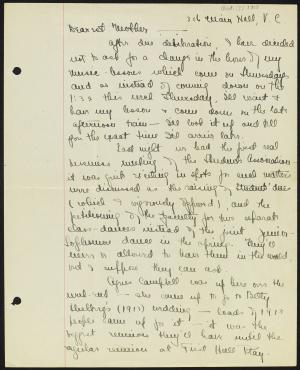 Oct. 17, 1915
306 Main Hall, V. C.
Dearest Mother —
After due deliberation, I have decided
not to ask for a change in the hour of my
music lesson which comes on Thursday,
and so instead of coming down on the
1:33 this next Thursday, I'll want to
have my lesson & come down on the late
afternoon train — I'll look it up and tell
you the exact time I'll arrive later.
Last night we had the first real
business meeting of the Students Association
it was quite exciting in spots for such matters
were discussed as the raising of Students' dues
(which I vigorously opposed), and the
petitioning of the Faculty for two separate
class-dances instead of the joint Junior-
Sophomore dance in the spring. They'll
never be allowed to have them in the world,
but I suppose they can ask.
Agnes Campbell was up here over the
week-end — she came up to go to Betty
(1911) wedding — loads of 1913
people came up for it, — it was the
biggest reunion they'll have until the
regular reunion at First Hall Play.